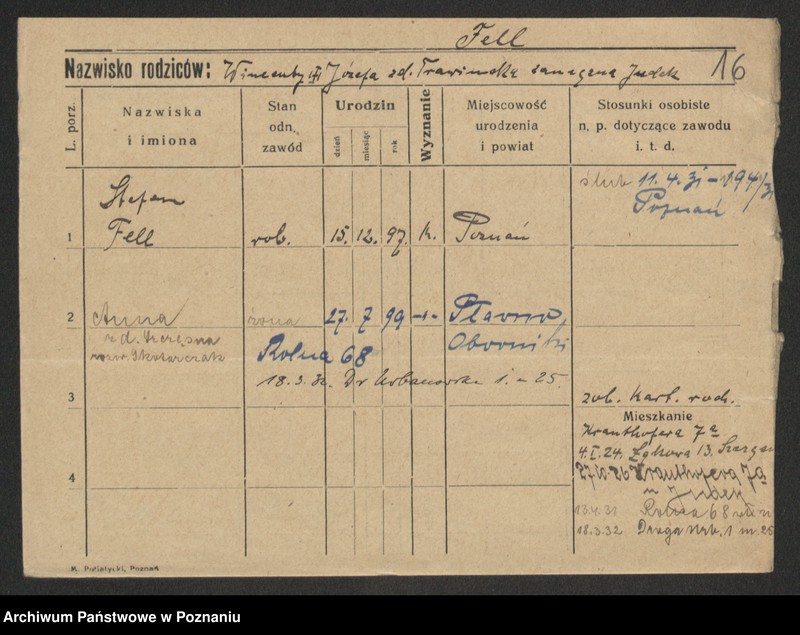 Fell
Nazwisko rodziców: Wincenty i Józefa zd. Trawińska zamężna Judek 16
L. porz.
Nazwiska
i imiona
Stan
odn.
zawód
Urodzin
dzień
miesiąc
rok
Wyznanie
Miejscowość
urodzenia
i powiat
Stosunki osobiste
n. p. dotyczące zawodu
i. t. d.
ślub 11.4.31
Poznań
Stefan
1 Fell rob. 15. 12. 97. k. Poznań
2 Anna żona 27. 7 99 -"-
zd. Szczęsna
rozw. Skotarczak
Oborniki
Rolna 68
18.3.32. Dr Urbanowska 1. - 25.
3 zob. kart. rodz.
Mieszkanie
Krauthofera 7a
4.I.24. Łąkowa 13,
4 27.10.26 Krauthofera 7a
u Judek
13.4.31 Rolna 68
18.3.32 Droga Urb. 1 m. 25
M. Putiatycki, Poznań
Archiwum Państwowe w Poznaniu